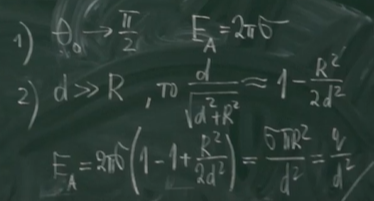 1) θ₀ → π/2 E_A = 2πσ
2) d ≫ R, то d/√(d²+R²) ≈ 1 − R²/2d²
E_A = 2πσ(1 − 1 + R²/2d²) = σπR²/d² = q/d²